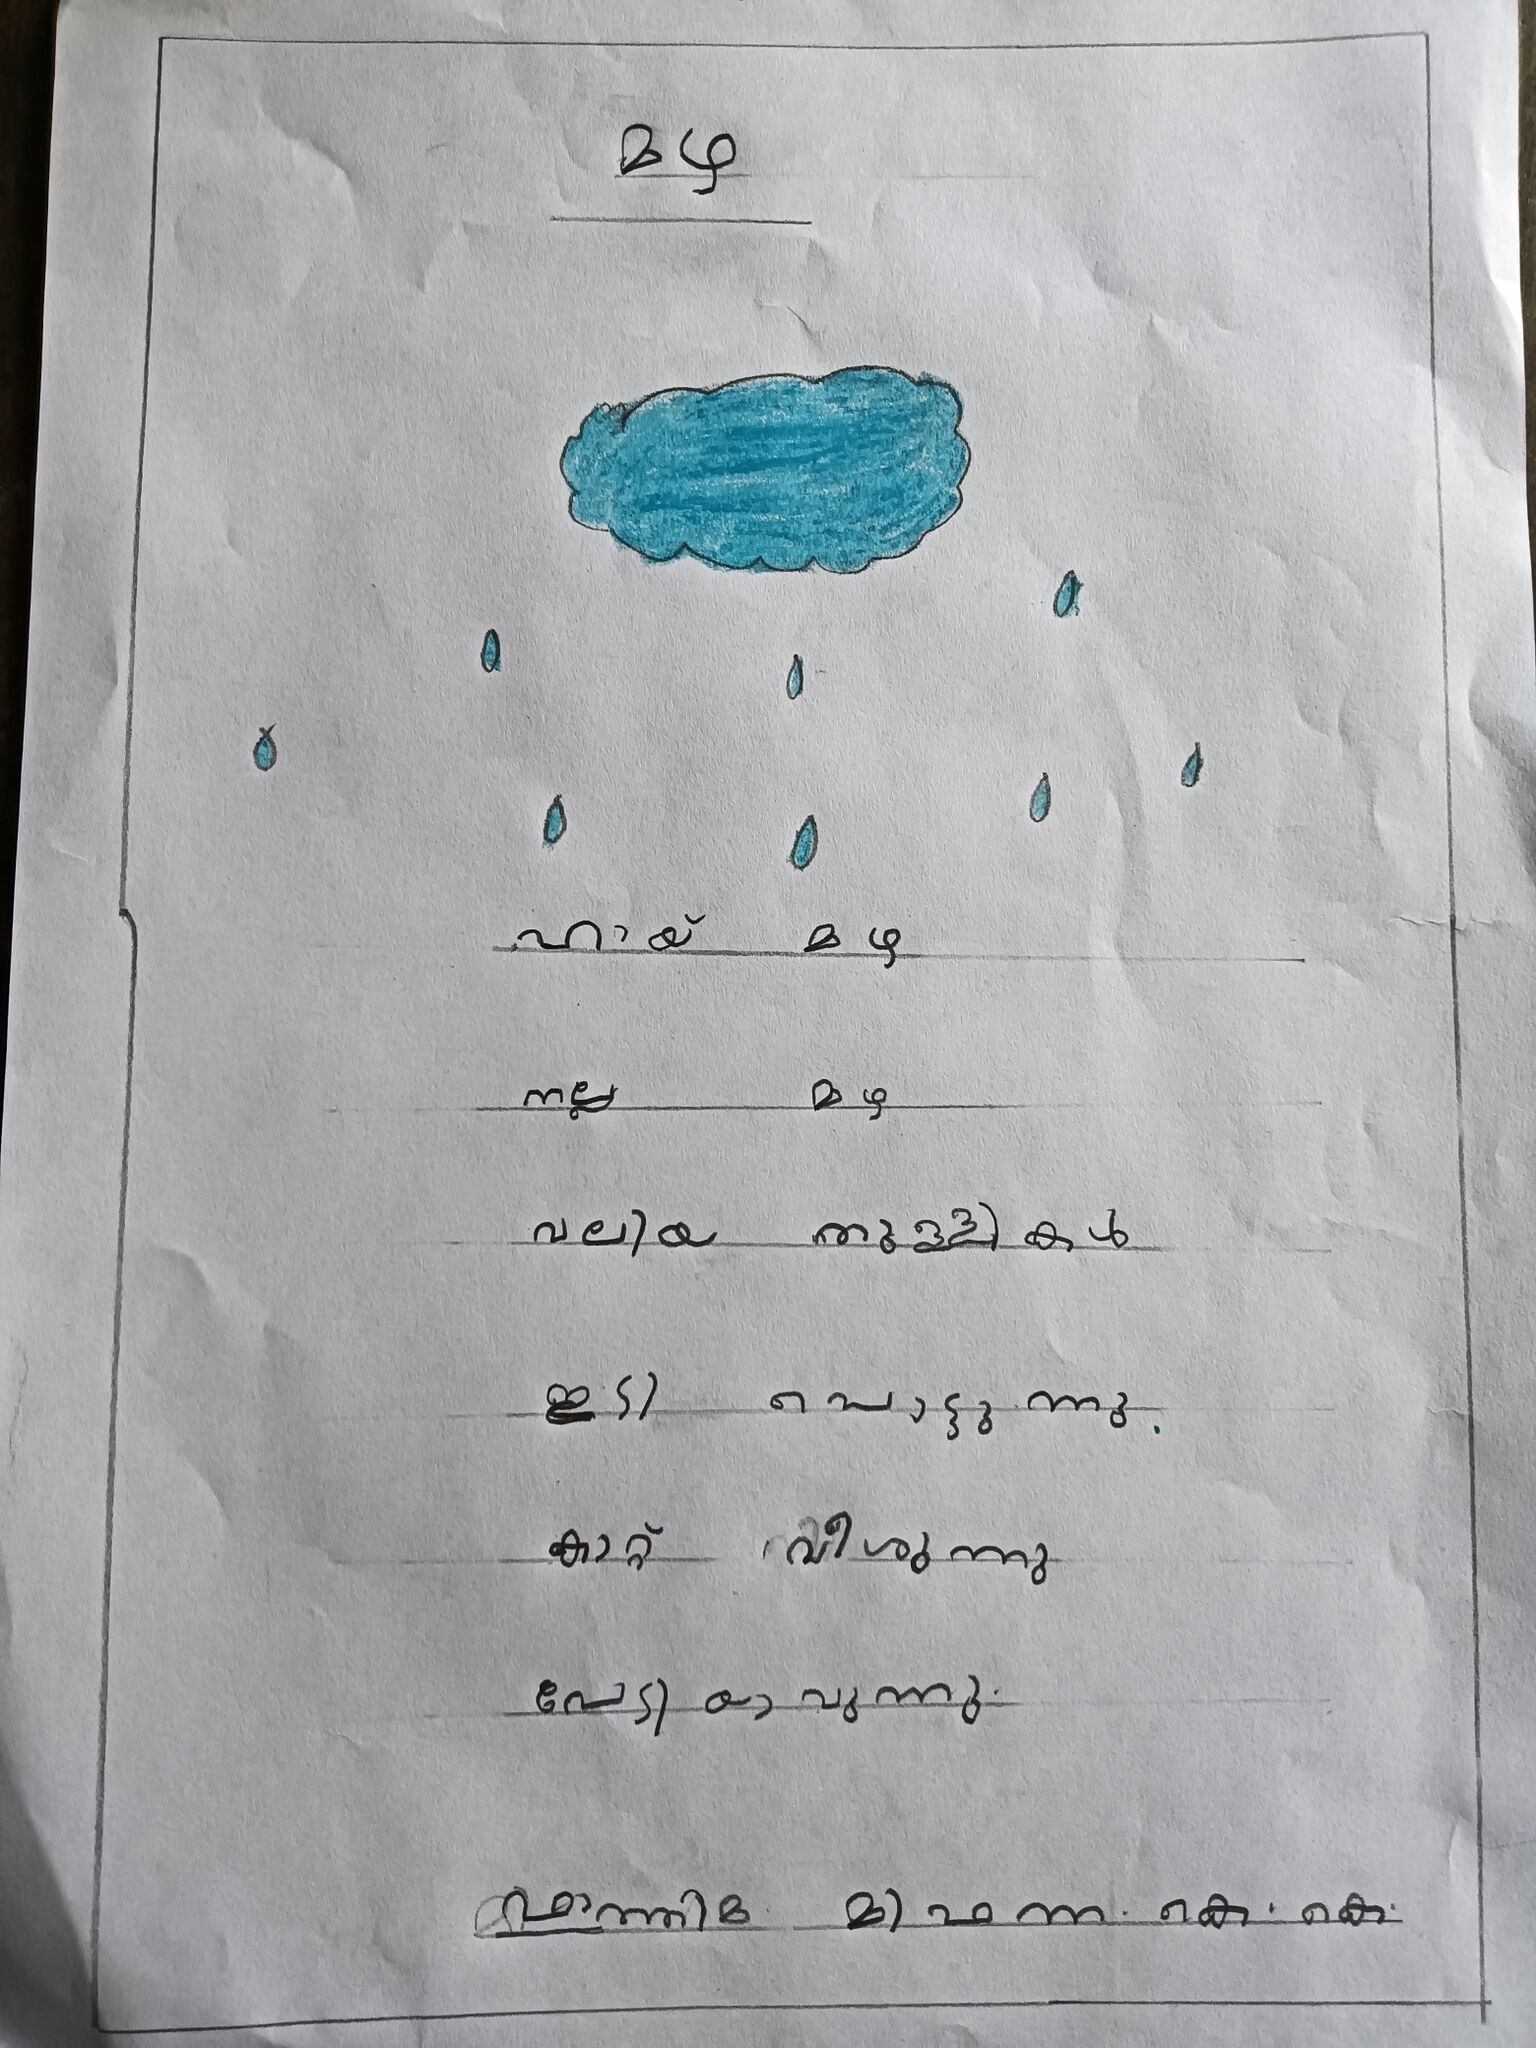 മഴ
ഹായ് മഴ
നല്ല മഴ
വലിയ തുള്ളികൾ
ഇടി പൊട്ടുന്നു.
കാറ്റ് വീശുന്നു
പേടിയാവുന്നു.
ഫാത്തിമ മിഫന്ന. കെ. കെ.